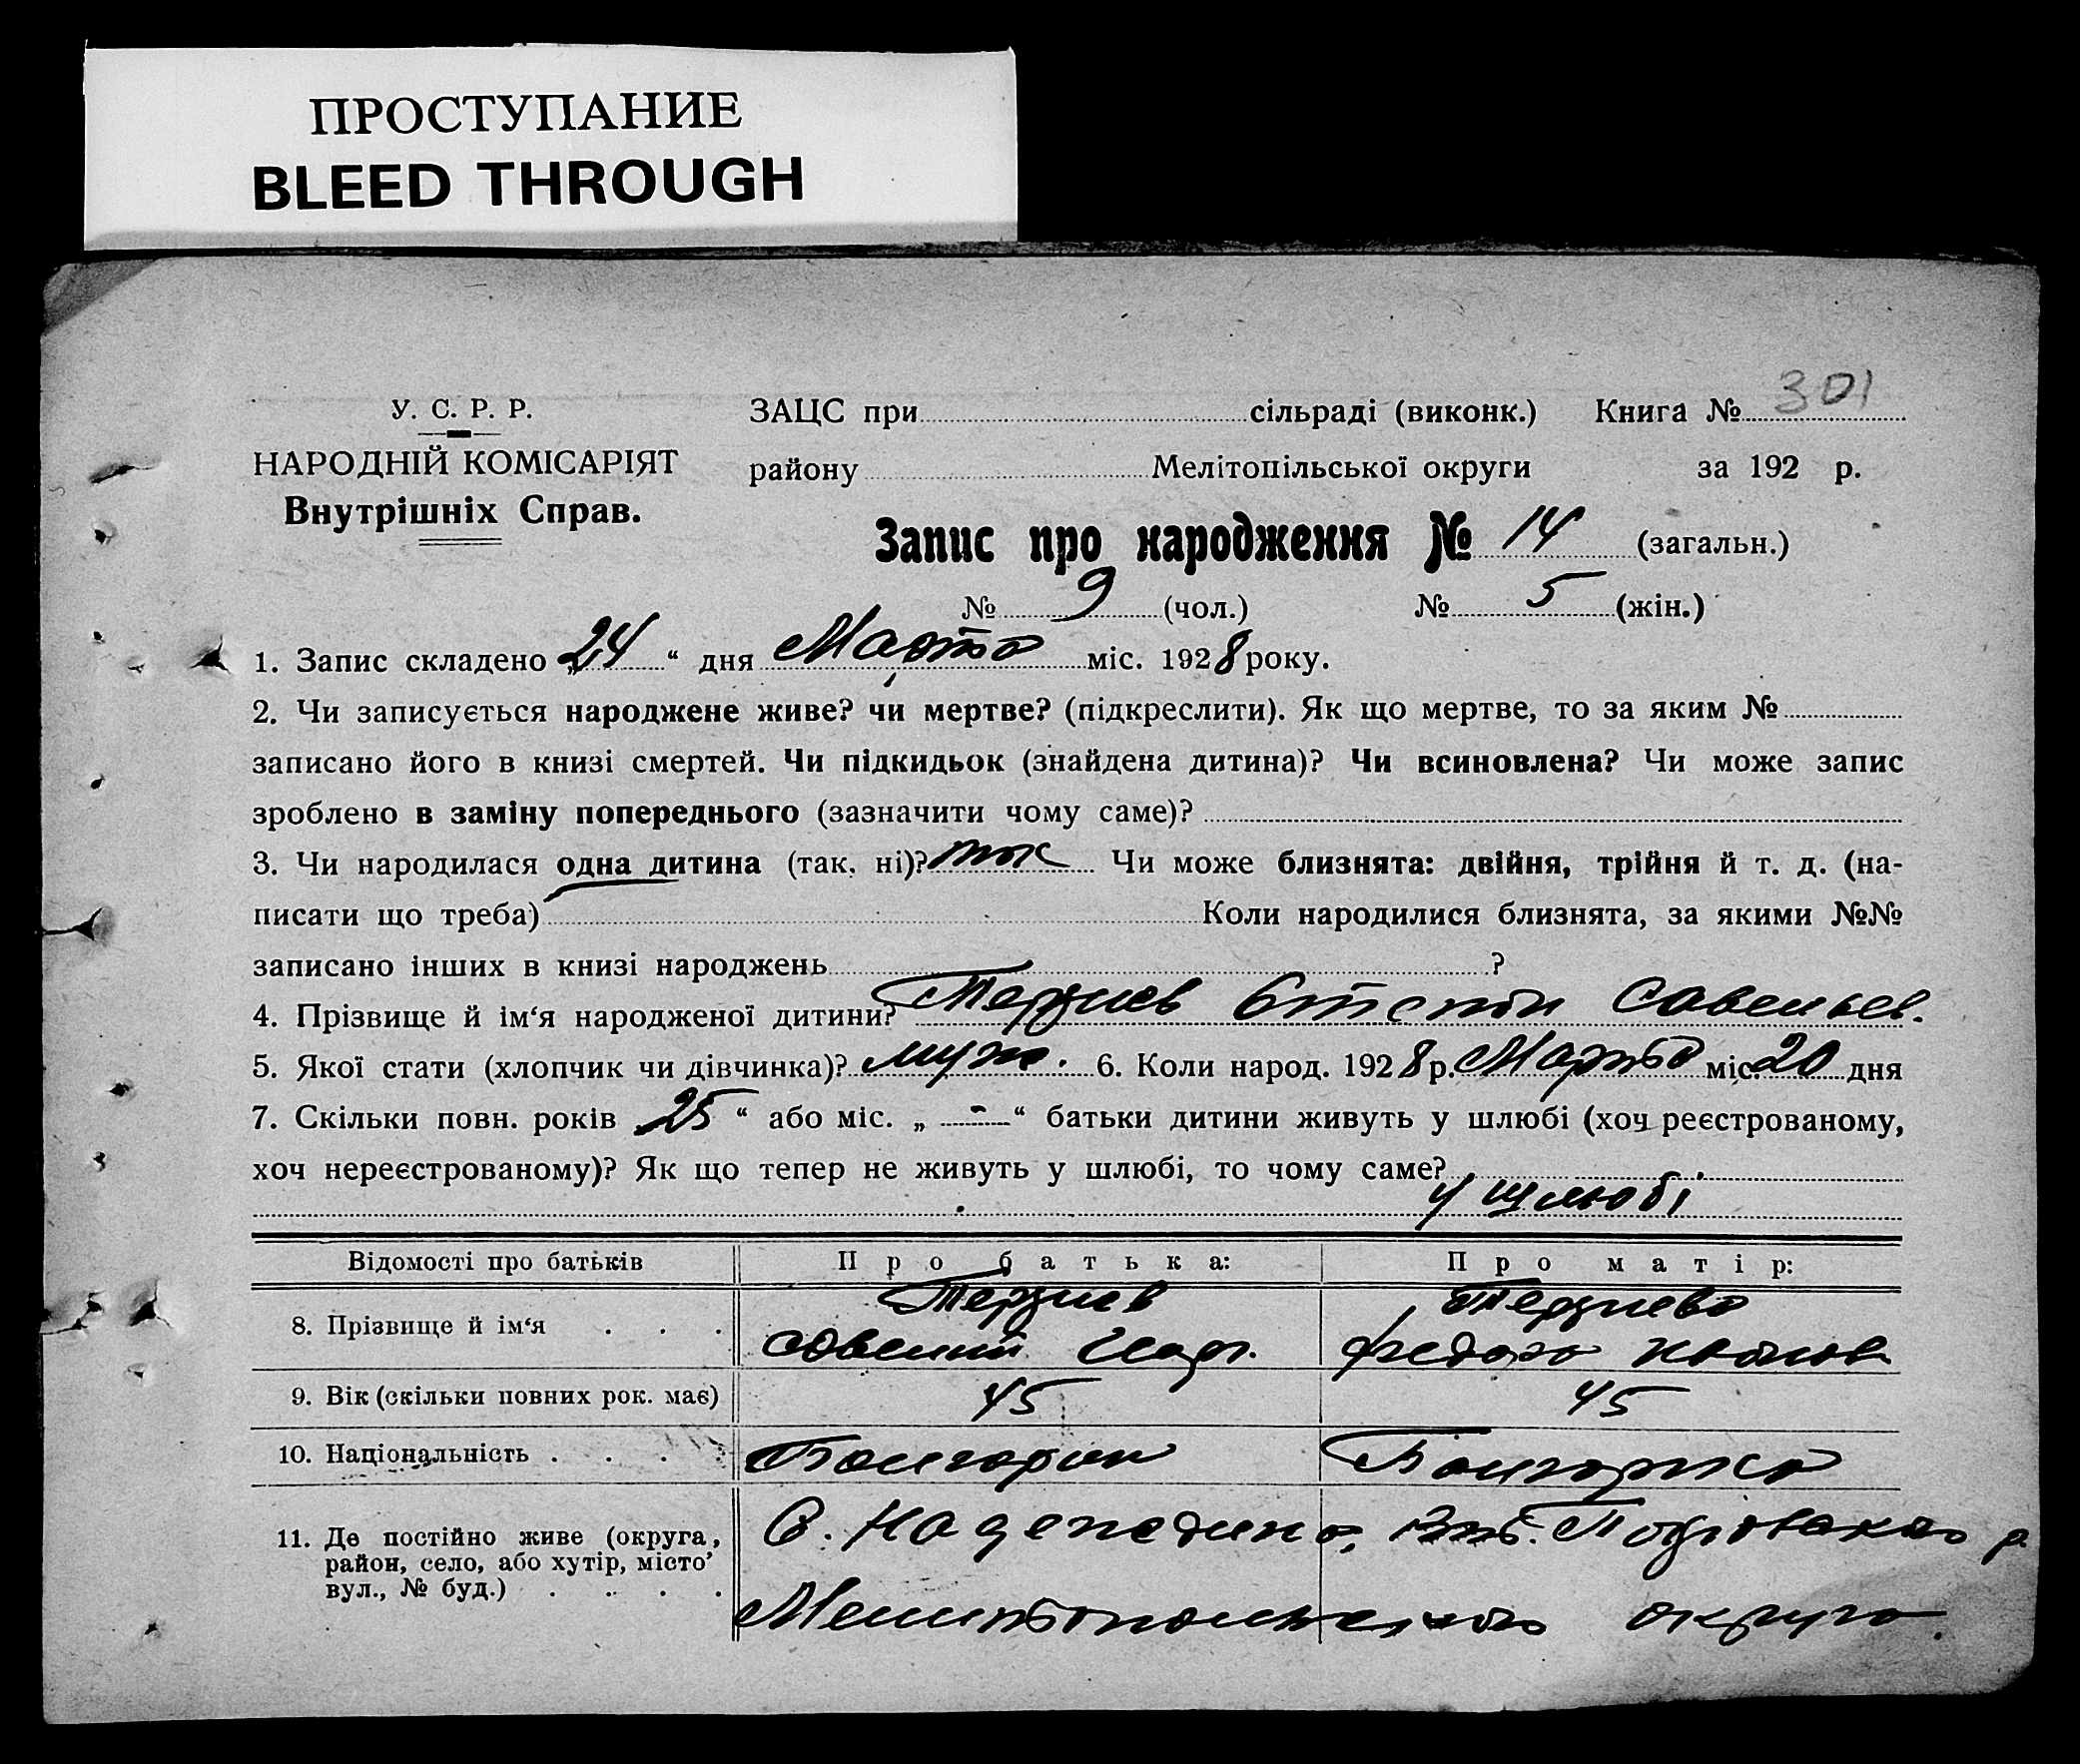 ПРОСТУПАНИЕ
BLEED THROUGH
У. С. Р. Р.
НАРОДНІЙ КОМІСАРІЯТ
Внутрішніх Справ.
ЗАЦС при сільраді (виконк.) Книга № 301
району Мелітопільської округи за 192 р.
Запис про народження № 14 (загальн.)
№ 9 (чол.) № 5 (жін.)
1. Запис складено „24“ дня Марта міс. 1928 року.
2. Чи записується народжене живе? чи мертве? (підкреслити). Як що мертве, то за яким №
записано його в книзі смертей. Чи підкидьок (знайдена дитина)? Чи всиновлена? Чи може запис
зроблено в заміну попереднього (зазначити чому саме)?
3. Чи народилася одна дитина (так, ні)? так Чи може близнята: двійня, трійня й т. д. (на-
писати що треба) Коли народилися близнята, за якими №№
записано інших в книзі народжень ?
4. Прізвище й ім‘я народженої дитини? Терзиев Степан Савельев.
5. Якої стати (хлопчик чи дівчинка)? муж. 6. Коли народ. 1928 р. Марта міс. 20 дня
7. Скільки повн. років 25 “ або міс. „ - “ батьки дитини живуть у шлюбі (хоч реєстрованому,
хоч нереєстрованому)? Як що тепер не живуть у шлюбі, то чому саме?
у шлюбі
Відомості про батьків Про батька: Про матір:
8. Прізвище й ім‘я . . . Терзиев Терзиева
Савелий Федора
9. Вік (скільки повних рок. має) 45 45
10. Національність . . . . Болгарин Болгарка
11. Де постійно живе (округа, район, село, або хутір, місто, вул., № буд.) . . . . С. р.
Мелитопольского округа.